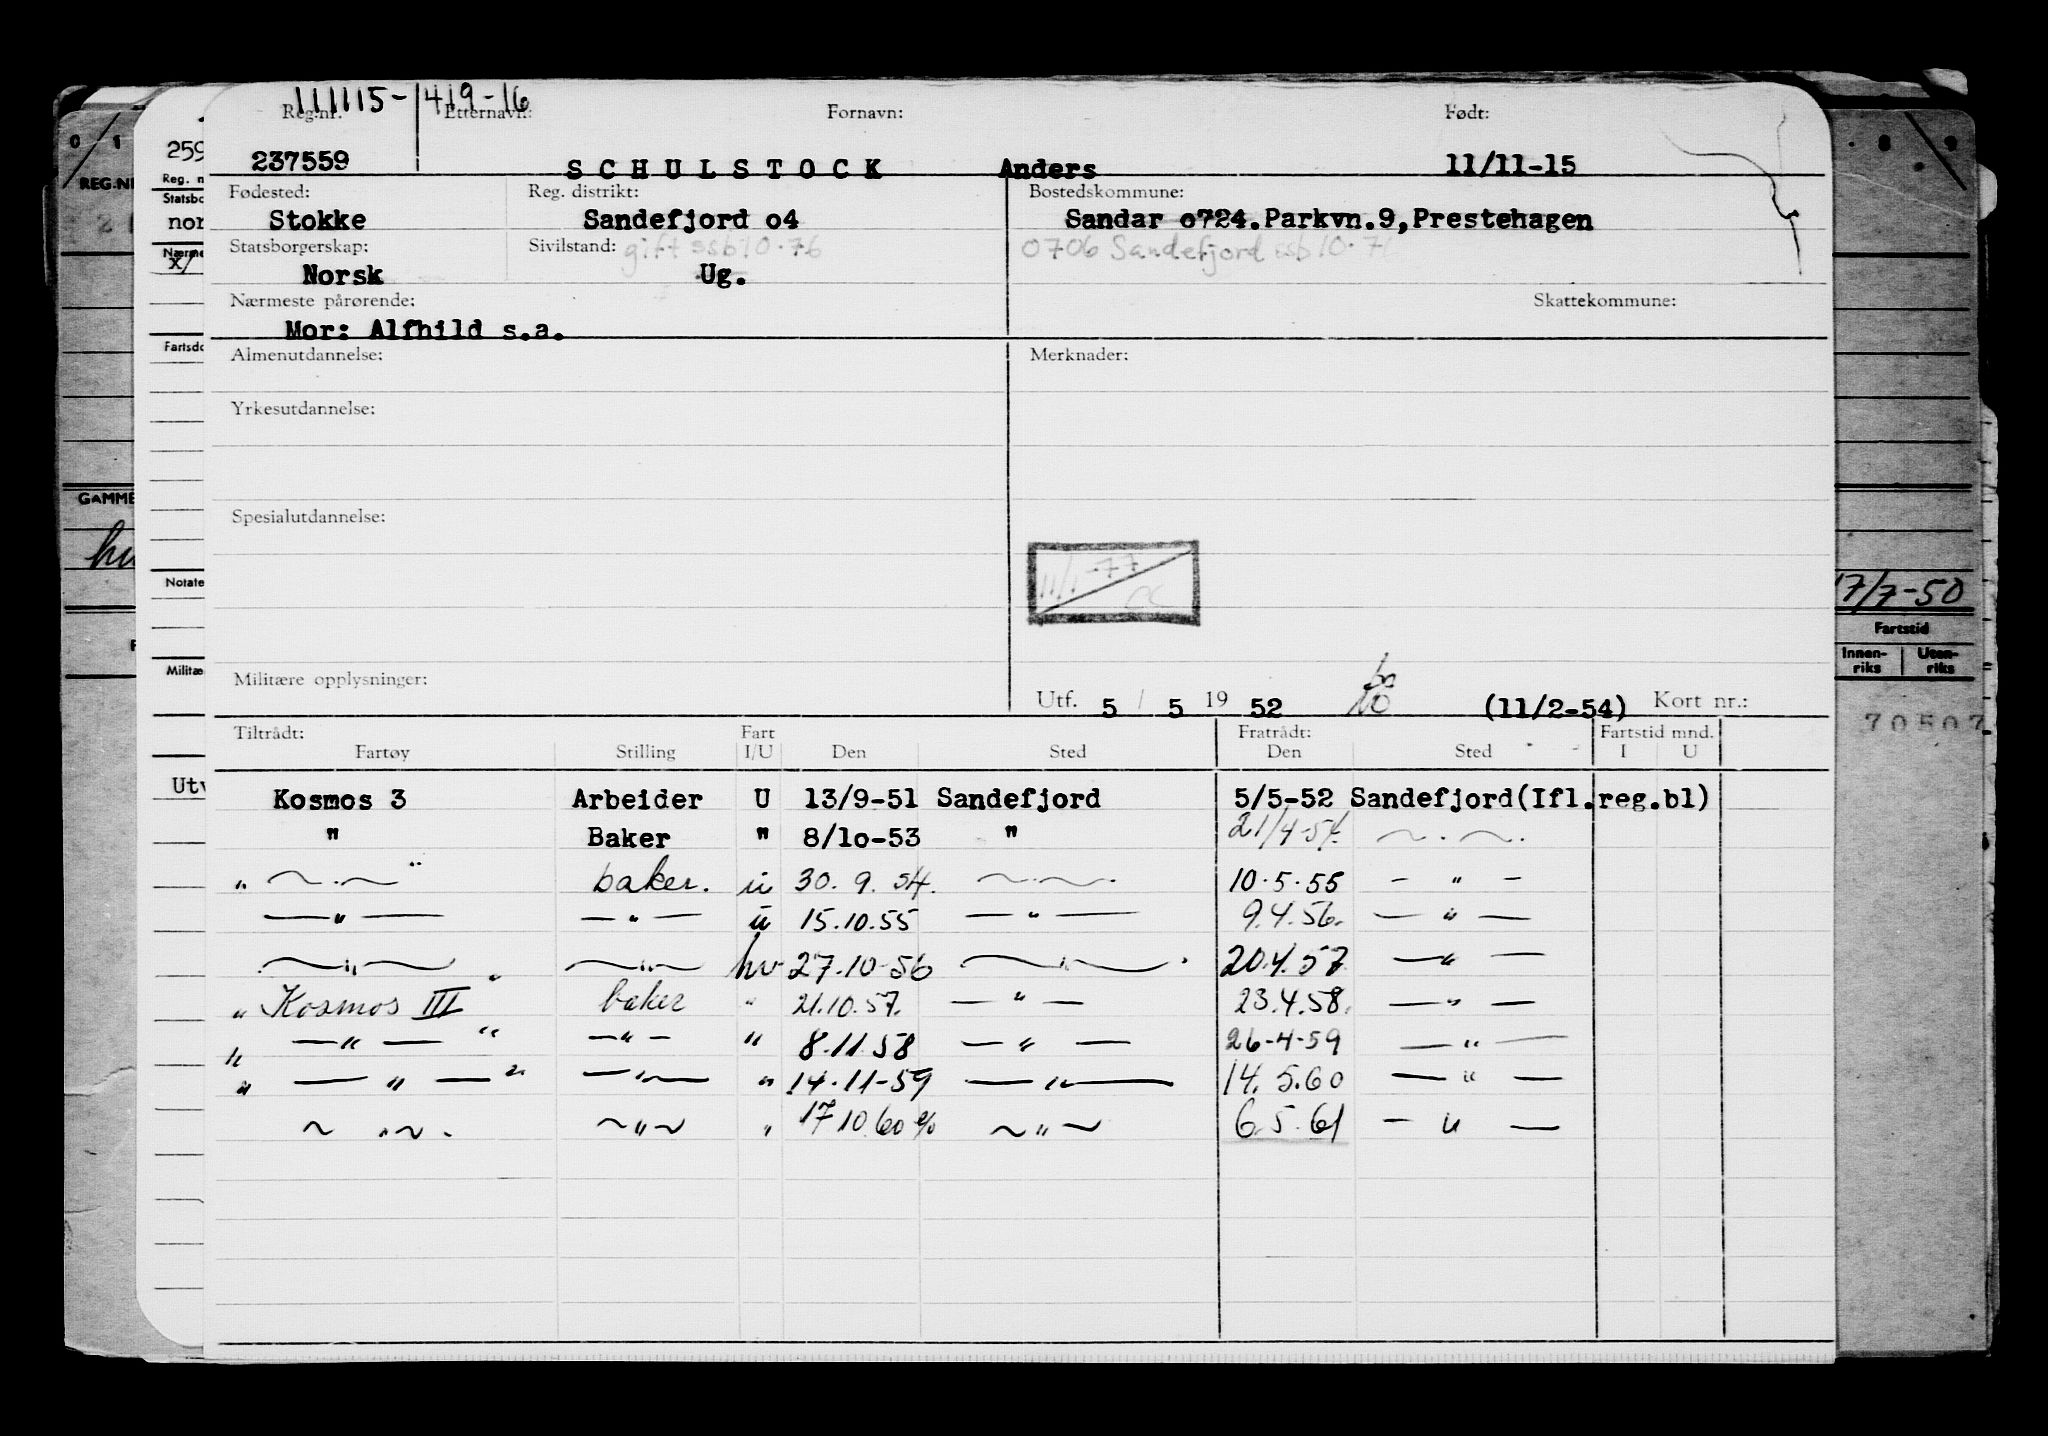 111115-1419-16
Reg.nr. Etternavn: Fornavn: Født:
237559 SCHULSTOCK Anders 11/11-15
Fødested: Reg. distrikt: Bostedskommune:
Stokke Sandefjord o4 Sandar o724.Parkvn.9,Prestehagen
Statsborgerskap: Sivilstand: gift ssb10.76 0706 Sandefjord ssb10.76
Norsk Ug.
Nærmeste pårørende: Skattekommune:
Mor: Alfhild s.a.
Almenutdannelse: Merknader:
Yrkesutdannelse:
Spesialutdannelse:
11/1-77
Militære opplysninger:
Utf. 5 / 5 19 52 (11/2-54) Kort nr.:
Tiltrådt: Fart Fratrådt: Fartstid mnd.
Fartøy Stilling I/U Den Sted Den Sted I U
Kosmos 3 Arbeider U 13/9-51 Sandefjord 5/5-52 Sandefjord(Ifl.reg.bl)
" Baker " 8/1o-53 " 21/4-54 ~.~.
" ~.~ " baker. u 30.9.54. ~.~. 10.5.55 - " -
- " - - " - u 15.10.55 - " - 9.4.56. - " -
~ " ~ ~ " ~ hv 27.10-56 ~ " ~ 20.4.57 - " -
" Kosmos III " baker " 21.10.57. - " - 23.4.58. - " -
" - " - " - " - " 8.11.58 - " - 26-4-59 - " -
" - " - " - " - " 14.11-59 - " - 14.5.60 - " -
~ " ~ . ~ " ~ " 17.10.60 ~ " ~ 6.5.61 - " -
0/1
REG.NR
GAMME
259
Reg. n
Statsbo
nor
Nærme
x/
Fartsdo
Notate
Militæ
Utv
8 9
17/7-50
Fartstid
Innen-riks Uten-riks
70507